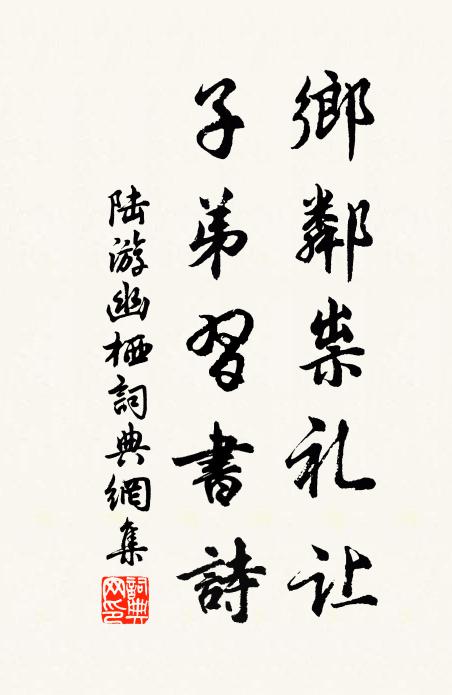 鄉鄰崇礼让
子弟習書詩
陆游幽栖詞典網集
詞典網印